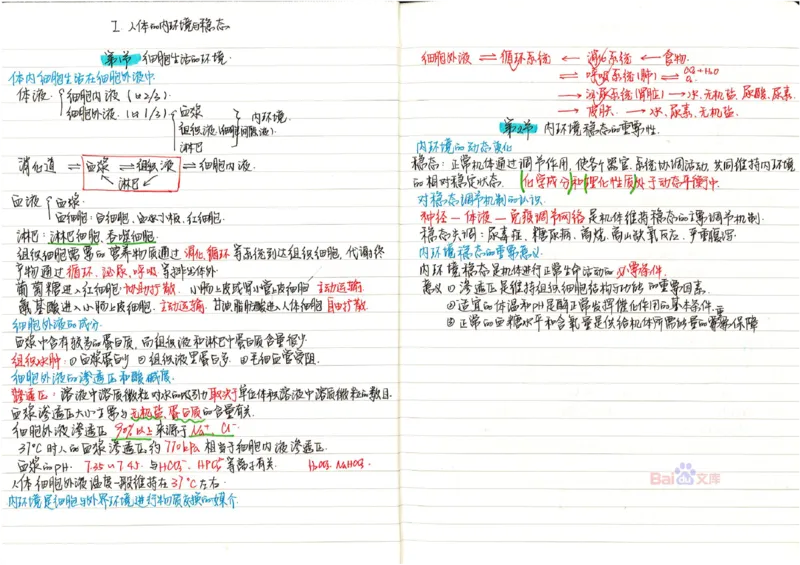 I 人体的内环境与稳态
第1节 细胞生活的环境
体内细胞生活在细胞外液中
体液 细胞内液(占2/3)
细胞外液(占1/3) 血浆
组织液(细胞间隙液) 内环境
淋巴
消化道 ⇌ 血浆 ⇌ 组织液 ⇌ 细胞内液
淋巴
血液 血浆
血细胞:白细胞、血小板、红细胞
淋巴:淋巴细胞、吞噬细胞
组织细胞需要的营养物质通过消化、循环等系统到达组织细胞,代谢终
产物通过循环、泌尿、呼吸等排出体外
葡萄糖进入红细胞 协助扩散 小肠上皮或肾小管上皮细胞 主动运输
氨基酸进入小肠上皮细胞 主动运输 甘油脂肪酸进入人体细胞 自由扩散
细胞外液的成分
血浆中含有较多的蛋白质,而组织液和淋巴中蛋白质含量很少
组织水肿:①血浆蛋白少 ②组织液里蛋白多 ③毛细血管受阻
细胞外液的渗透压和酸碱度
渗透压:溶液中溶质微粒对水的吸引力 取决于单位体积溶液中溶质微粒的数目
血浆渗透压大小主要与无机盐、蛋白质的含量有关
细胞外液渗透压 90%以上来源于 Na⁺、Cl⁻
37℃时人的血浆渗透压约770kPa 相当于细胞内液渗透压
血浆的pH 7.35~7.45 与HCO₃⁻、HPO₄²⁻等离子有关 H₂CO₃ NaHCO₃
人体细胞外液温度一般维持在37℃左右
内环境是细胞与外界环境进行物质交换的媒介
细胞外液 ⇌ 循环系统 ← 消化系统 ← 食物
⇌ 呼吸系统(肺) ⇌ CO₂+H₂O
O₂
→ 泌尿系统(肾脏) → 水、无机盐、尿酸、尿素
→ 皮肤 → 水、尿素、无机盐
第2节 内环境稳态的重要性
内环境的动态变化
稳态:正常机体通过调节作用,使各个器官、系统协调活动,共同维持内环境
的相对稳定状态 (化学成分)和(理化性质)处于动态平衡中
对稳态调节机制的认识
神经—体液—免疫调节网络是机体维持稳态的主要调节机制
稳态失调:尿毒症、糖尿病、高烧、高山缺氧反应、严重腹泻
内环境稳态的重要意义
内环境稳态是机体进行正常生命活动的必要条件
意义 ①渗透压是维持组织细胞结构与功能的重要因素
②适宜的体温和pH是酶正常发挥催化作用的基本条件
③正常的血糖水平和含氧量是供给机体所需能量的重要保障
Baidu文库